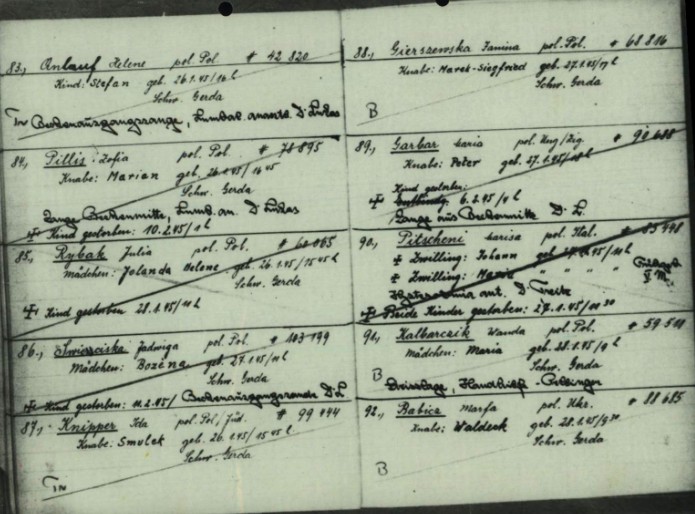 83., Anlauf Helene pol. Pol. # 42 820
Kind: Stefan geb. 26.1.45/16 h
Schw. Gerda
Beckenausgangszange, Dr Lukas
84., Pillis Zofia pol. Pol. # 78 895
Knabe: Marian geb. 26.1.45/16 45
Schw. Gerda
Zange Beckenmitte, Dr Lukas
Kind gestorben: 10.2.45/
85., Rybak Julia pol. Pol.
Mädchen: Jolanda Helene geb. 26.1.45/15 45 h
Schw. Gerda
Kind gestorben 28.1.45/11 h
86., Jadwiga pol. Pol. # 103 199
Mädchen: Bozena geb. 27.1.45/11 h
Schw. Gerda
Kind gestorben: 11.2.45/ Beckenausgangszange Dr L
87., Knipper Ida pol. Pol/Jüd. # 99 944
Knabe: Smulek geb. 26.1.45/15 45 h
Schw. Gerda
88., Gierszewska Janina pol. Pol. # 68 816
Knabe: Marek-Siegfried geb. 27.1.45/17 h
Schw. Gerda
B
89., Garbar Maria pol. Ung/Zig.
Knabe: Peter geb. 27.1.45/18 h
Kind gestorben:
6.2.45/9 h
Zange aus Beckenmitte Dr. L.
90., Pitscheni Larisa pol. Ital. # 85 498
Zwilling: Johann geb. 27.1.45/
Zwilling: Maria " " " "
Dr. Treite
Beide Kinder gestorben: 27.1.45/11 30
91., Kalbarczik Wanda pol. Pol. # 59 511
Mädchen: Maria geb. 28.1.45/9 h
Schw. Gerda
B
Steisslage, Handhilfe -
92., Babicz Marfa pol. Ukr. # 88 685
Knabe: Waldeck geb. 28.1.45/9 30
Schw. Gerda
B